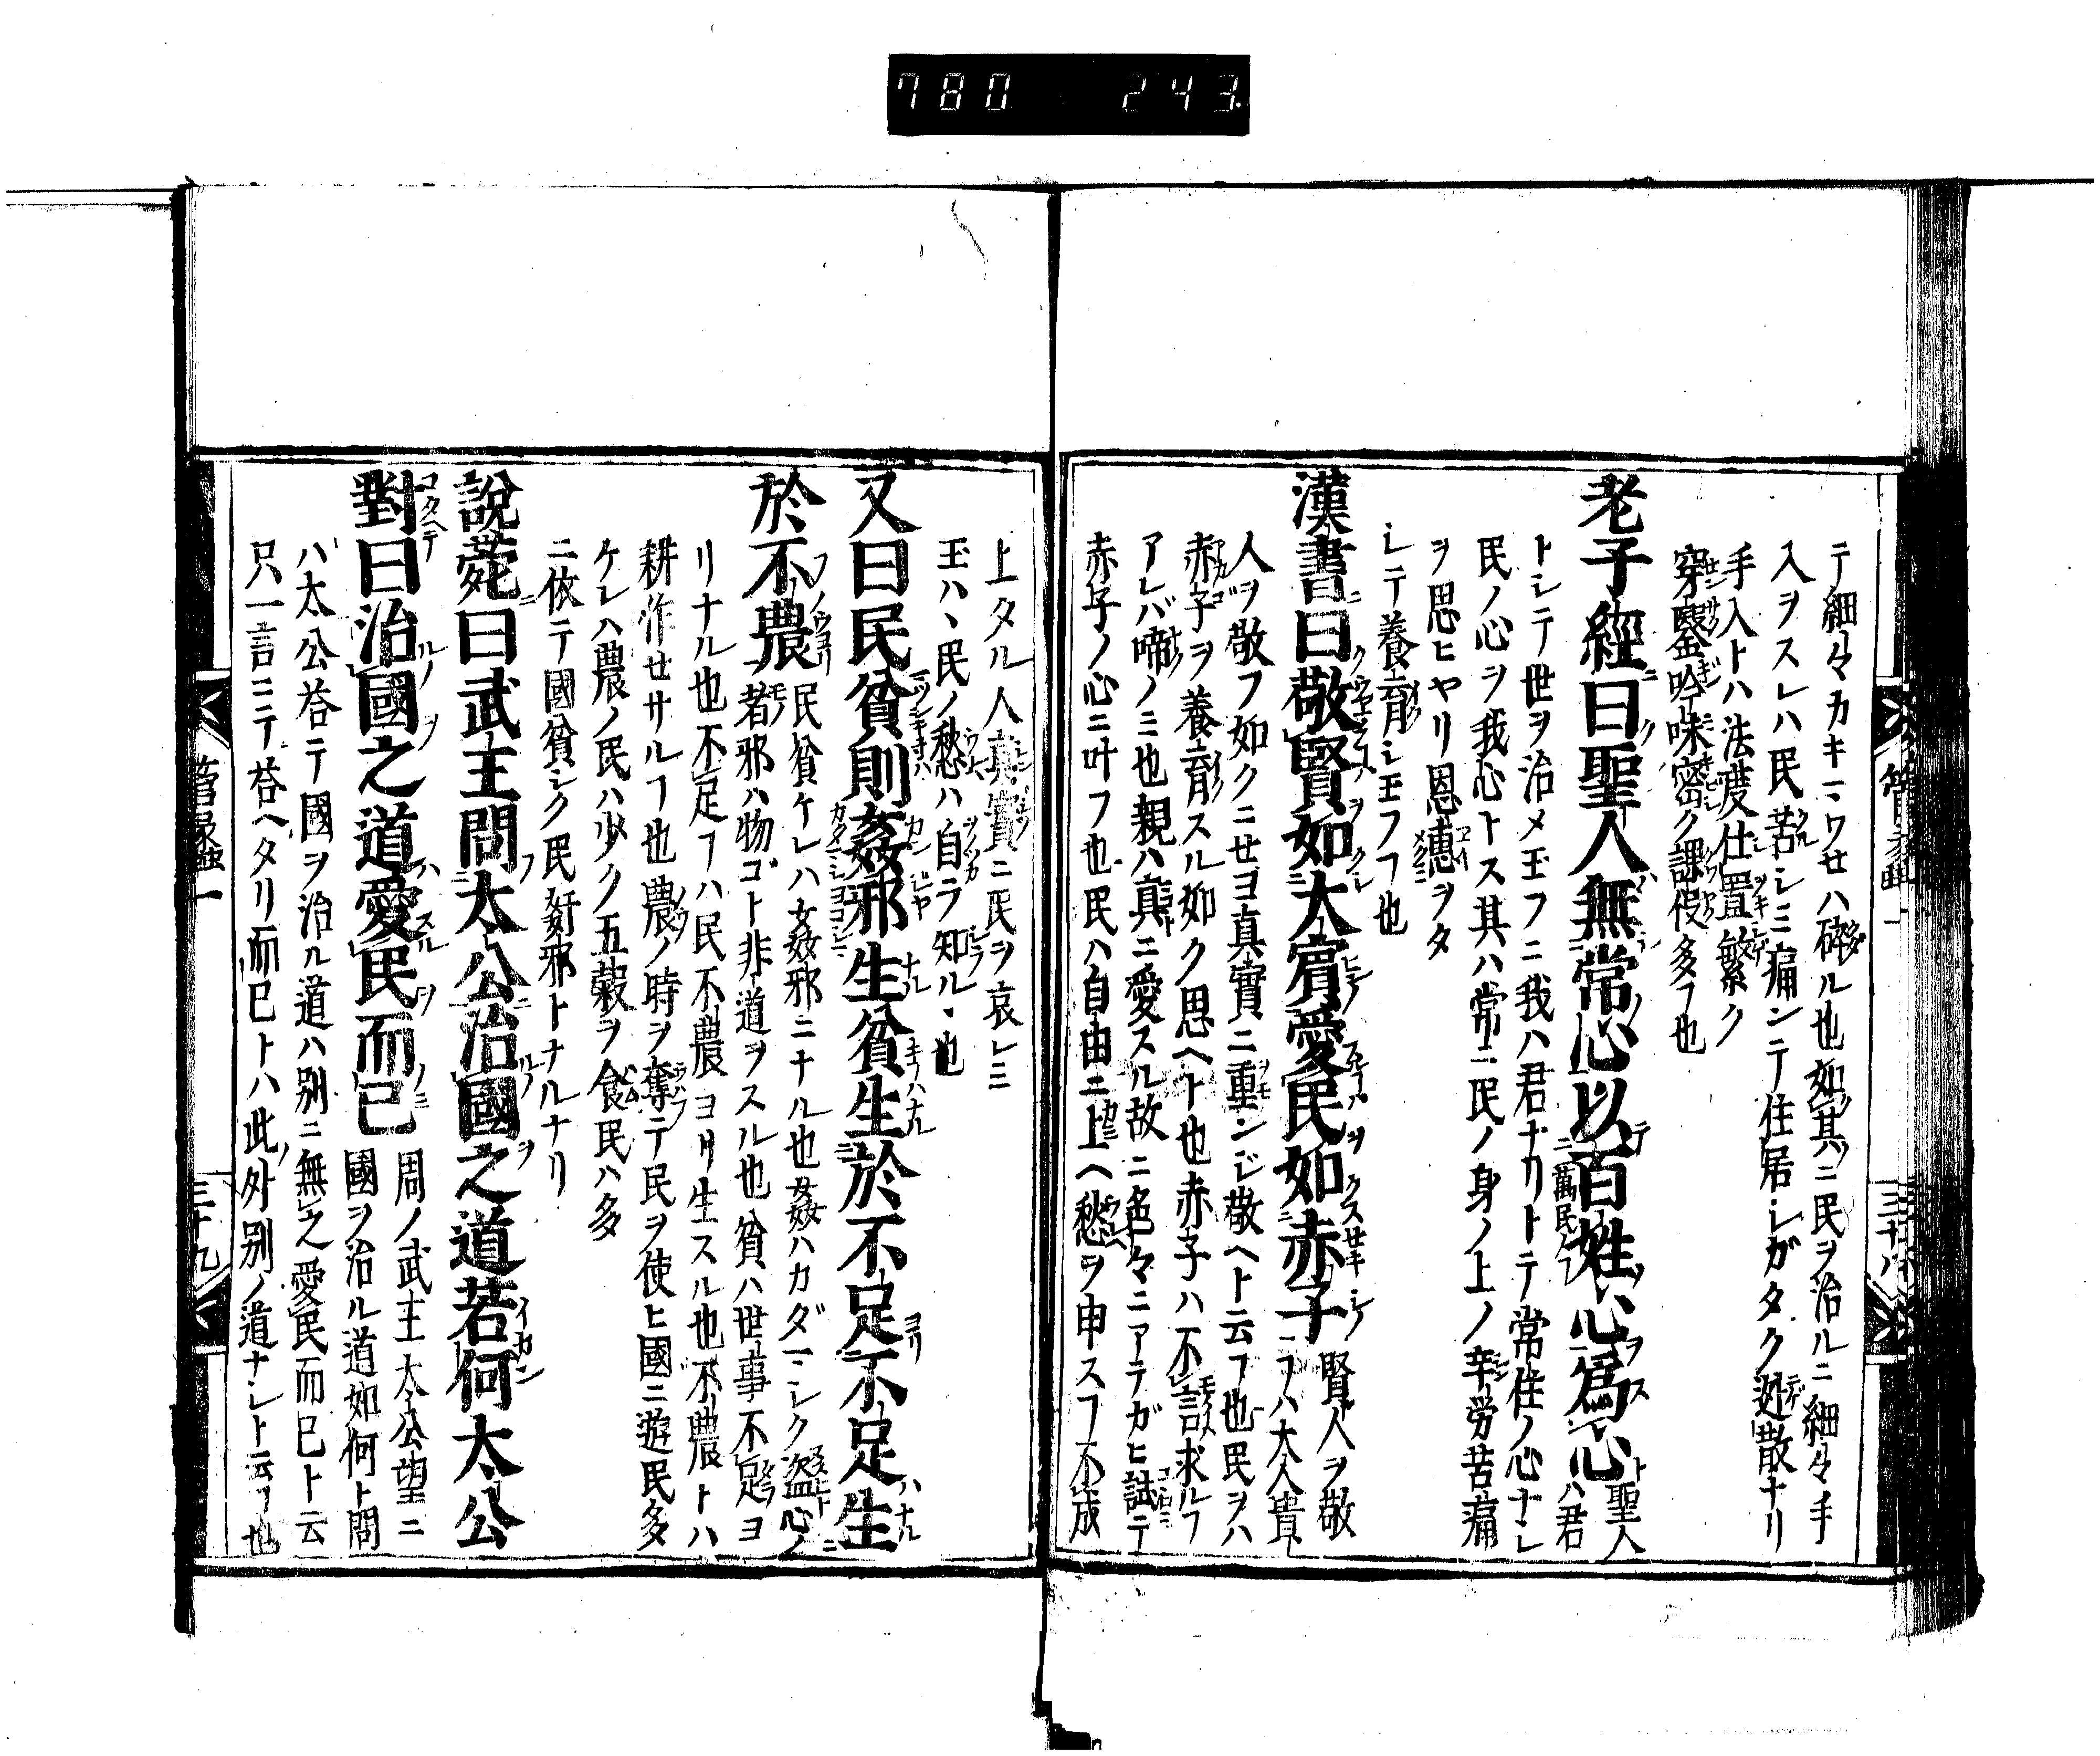 780 243
テ細々マカキマワセハ碎ル也如其ニ民ヲ治ルニ細々手
入ヲスレハ民苦シミ痛ンテ住居シガタク迯散ナリ
手入トハ法度仕置繁ク
穿鑿吟味密ク課役多フ也
老子經曰聖人無常心以百姓心爲心
聖人ハ君
トシテ世ヲ治メ玉フニ我ハ君ナリトテ常住ノ心ナシ
民ノ心ヲ我心トス其ハ常ニ民ノ身ノ上ノ辛労苦痛
ヲ思ヒヤリ恩惠ヲタ
レテ養育シ玉フフ也
漢書曰敬賢如大賓愛民如赤子
賢人ヲ敬
フハ大人貴
人ヲ敬フ如クニセヨ真實ニ重ンジ敬ヘト云フ也民ヲハ
赤子ヲ養育スル如ク思ヘト也赤子ハ不言求ルフ
アレバ啼ノミ也親ハ真ニ愛スル故ニ色々ニアテガヒ試テ
赤子ノ心ニ叶フ也民ハ自由ニ上ヘ愁ヲ申スフ不成
三十八
上タル人真實ニ民ヲ哀レミ
玉ハヽ民ノ愁ハ自ラ知ルヽ也
又曰民貧則姦邪生貧生於不足不足生
於不農
民貧ケレハ姦邪ニナル也姦ハカダマシク盗心ノ
者邪ハ物ゴト非道ヲスル也貧ハ世事不足ヨ
リナル也不足フハ民不農ヨリ生スル也不農トハ
耕作セサルフ也農ノ時ヲ奪テ民ヲ使ヒ國ニ遊民多
ケレハ農ノ民ハ少ク五穀ヲ食民ハ多
ニ依テ國貧シク民姦邪トナルナリ
說菀曰武王問太公治國之道若何太公
對曰治國之道愛民而已
周ノ武王太公望ニ
國ヲ治ル道如何ト問
ハ太公荅テ國ヲ治ル道ハ別ニ無之愛民而已ト云
只一言ニテ荅ヘタリ而已トハ此外別ノ道ナシト云フ也
三十九